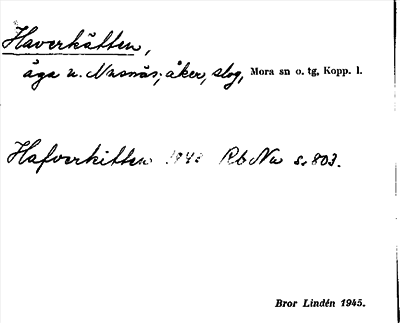 Haverkätten,
äga n. Nusnäs; åker, slog, Mora sn o. tg, Kopp. l.
Hafverkitten Rb Nu s. 803.
Bror Lindén 1945.